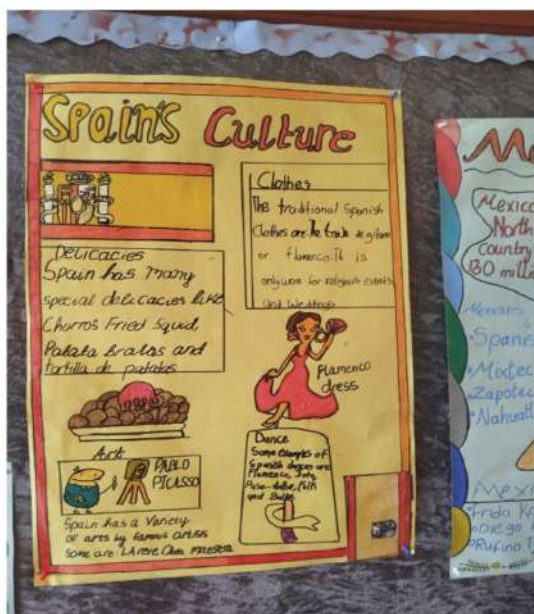 Spain's Culture
Delicacies
Spain has many
special delicacies like
Churros Fried Squid,
Patata Bratas and
tortilla de patatas
Clothes
The traditional Spanish
Clothes are the traje de gitana
or flamenco. It is
only worn for religious events
and Weddings
Flamenco
dress
Art
PABLO
PICASSO
Spain has a Variety
of arts by famous artists
Some are:
Dance
Some Examples of
Spanish dances are
Flamenco, Jota,
Folk
and
Mexico
North
country
130 milli
Spanis
Mixtec
Zapotec
Nahuatl
Mexi
Frida K
Diego
Rufino T